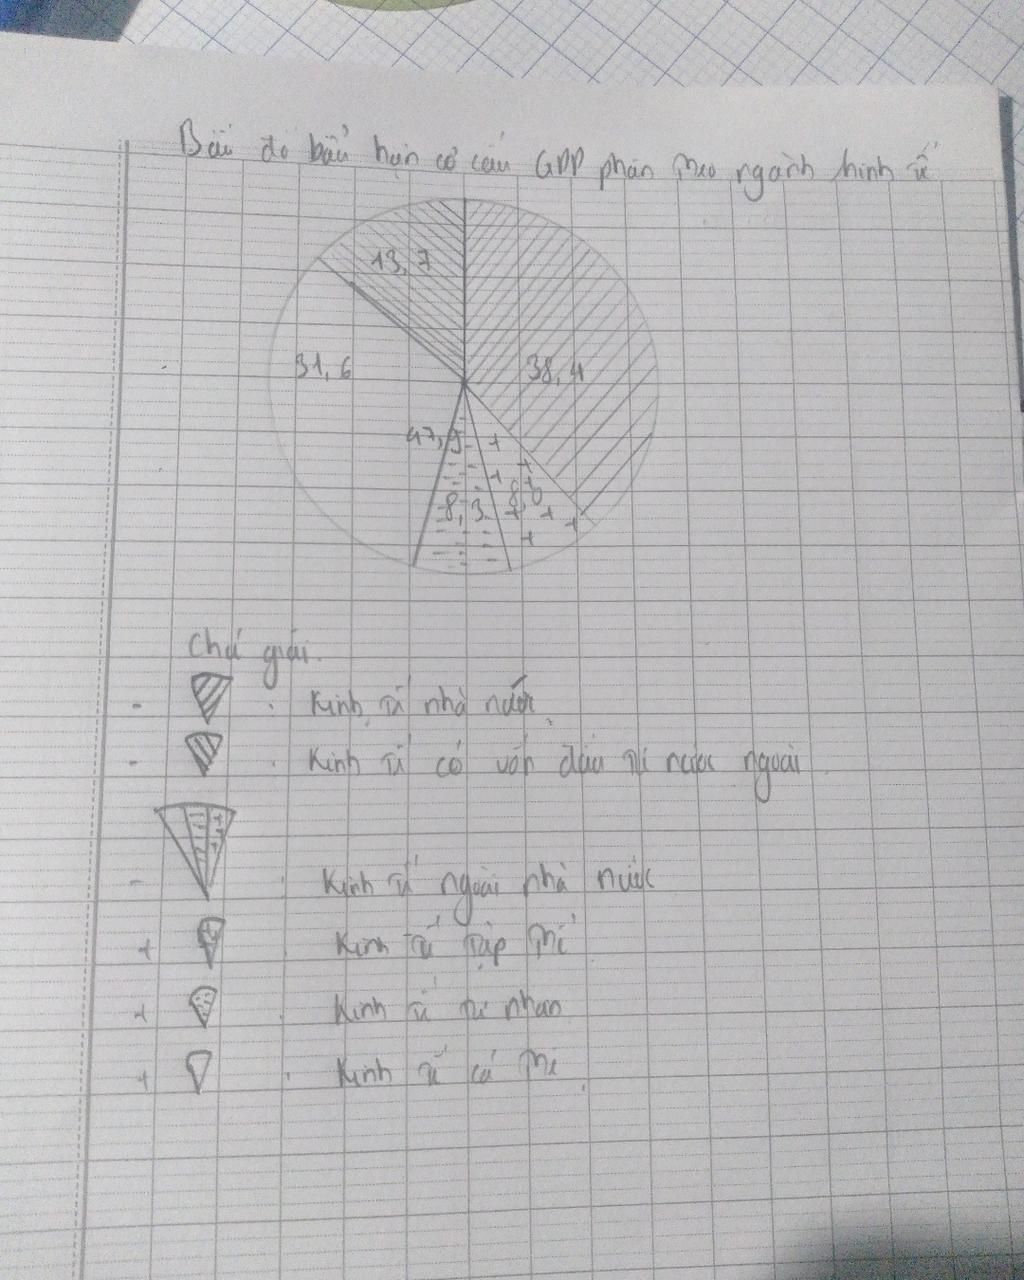 Biểu đồ biểu hiện cơ cấu GDP phân theo ngành kinh tế
13,7
38,4
31,6
47,9
8,3
8,0
Chú giải
- : Kinh tế nhà nước
- : Kinh tế có vốn đầu tư nước ngoài
- : Kinh tế ngoài nhà nước
+ Kinh tế tập thể
+ : Kinh tế tư nhân
+ : Kinh tế cá thể